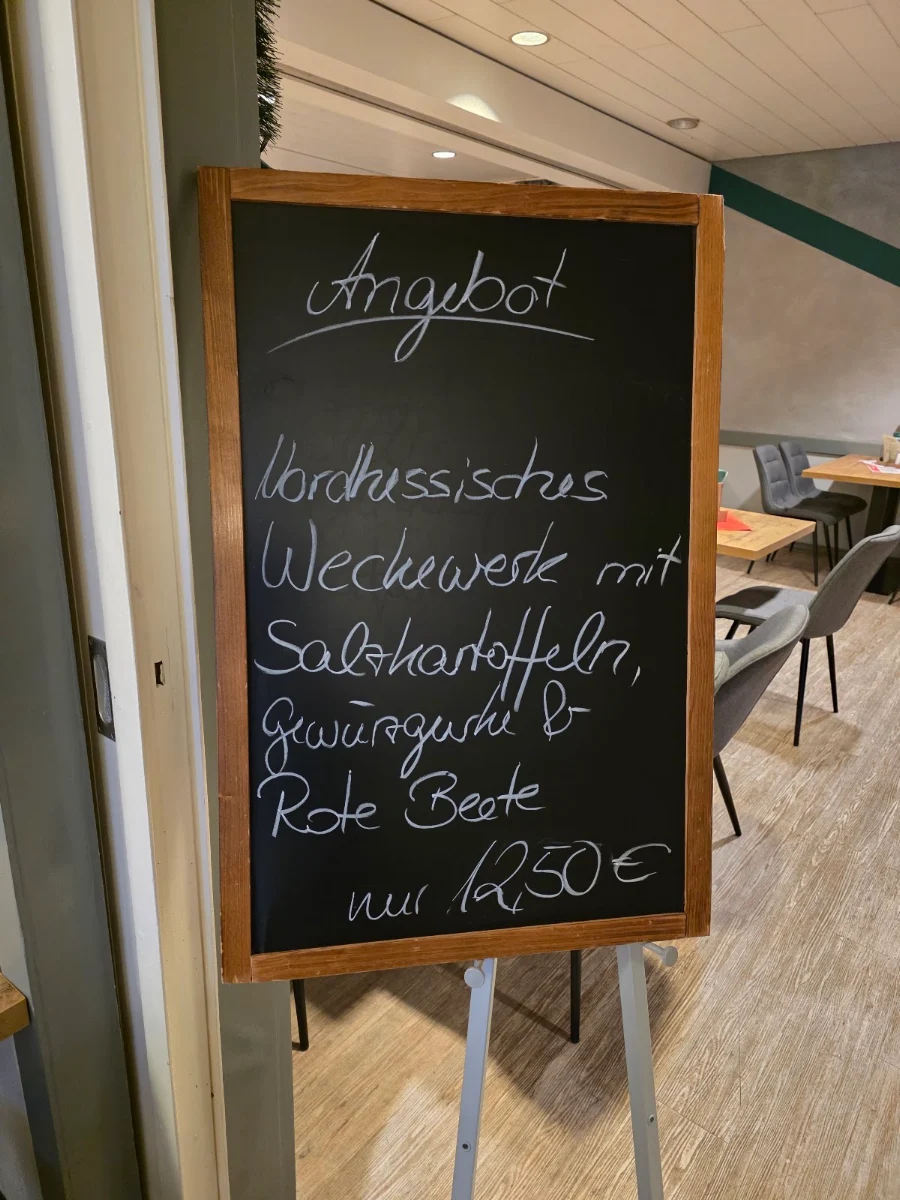 Angebot
Nordhessisches
Weckewerk mit
Salzkartoffeln,
Gewürzgurke &
Rote Beete
nur 12,50 €